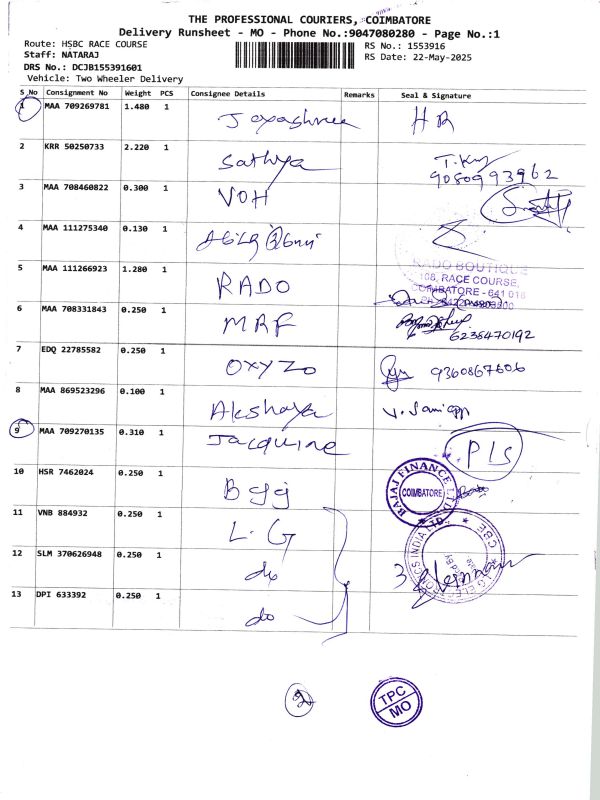 THE PROFESSIONAL COURIERS, COIMBATORE
Delivery Runsheet - MO - Phone No.:9047080280 - Page No.:1
Route: HSBC RACE COURSE
RS No.: 1553916
Staff: NATARAJ
RS Date: 22-May-2025
DRS No.: DCJB155391601
Vehicle: Two Wheeler Delivery
S_No Consignment No Weight PCS Consignee Details Remarks Seal & Signature
1 MAA 709269781 1.480 1 Jayashree
2 KRR 50250733 2.220 1 Sathya 9080993962
3 MAA 708460822 0.300 1 VOH
4 MAA 111275340 0.130 1
5 MAA 111266923 1.280 1 RADO
RADO BOUTIQUE
108, RACE COURSE,
COIMBATORE - 641 018
6 MAA 708331843 0.250 1 MRF 6238470192
7 EDQ 22785582 0.250 1 OXYZO 9360867606
8 MAA 869523296 0.100 1 Akshaya
9 MAA 709270135 0.310 1 Jacquine
10 HSR 7462024 0.250 1
BAJAJ FINANCE LTD
COIMBATORE
11 VNB 884932 0.250 1 L.G
12 SLM 370626948 0.250 1 do 3
13 DPI 633392 0.250 1 do
CBE
TPC
MO